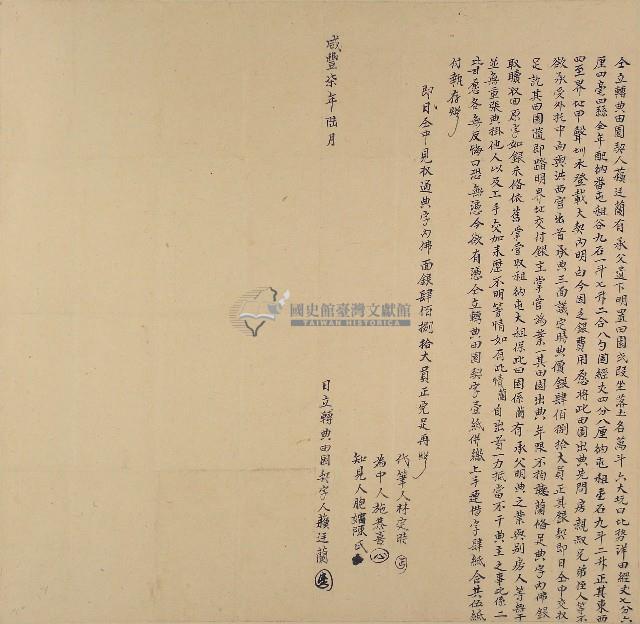 仝立轉典田園契人蘇廷蘭有承父遺下明置田園弍段坐落土名萬斗六大坑口北勢洋田經丈七分六
厘四毫四絲全年配納番屯租谷九石一斗七升二合八勺園經丈四分八厘納屯租壹石九斗二升正其東西
四至界址甲聲圳水登載大契內明白今因乏銀費用愿將此田園出典先問房親叔兄弟侄人等不
欲承受外托中向與洪西官出首承典三面議定時典價銀肆佰捌拾大員正其銀契即日仝中交收
足訖其田園隨即踏明界址交付銀主掌管為業一其田園出典年限不拘聽蘭備足典字內佛銀
取贖收回原字如銀未備依舊掌管收租納屯大租保此田園係蘭有承父明典之業與別房人等無干
並無重張典掛他人以及上手交加來歷不明等情如有此情蘭自出首一力抵當不干典主之事此係二
比甘愿各無反悔口恐無憑今欲有憑仝立轉典田園契字壹紙併繳上手連惜字肆紙合共伍紙
付執存炤
即日仝中見收過典字內佛面銀肆佰捌拾大員正完足再炤
代筆人林定時
為中人施恭意
知見人胞嬸陳氏
日立轉典田園契字人蘇廷蘭
咸豐柒年陸月
國史館臺灣文獻館
TAIWAN HISTORICA